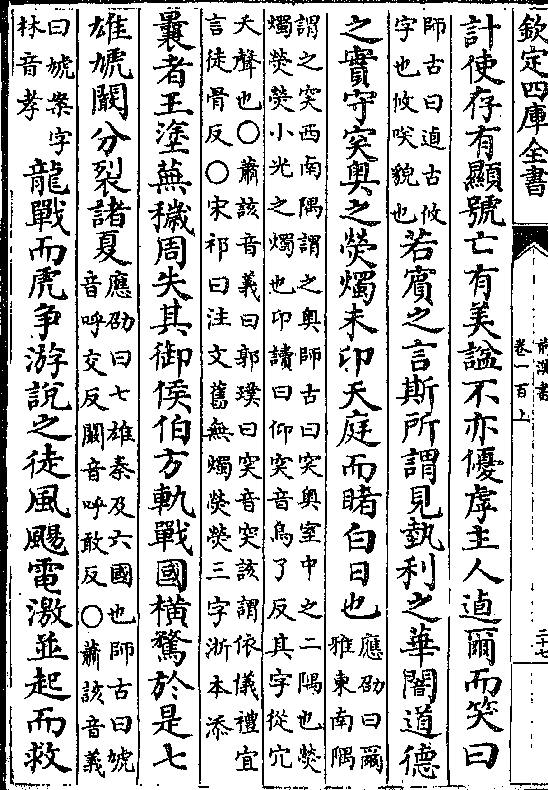 欽定四庫全書
前漢書
卷一百上
三七
計使存有顯號亡有美諡不亦優虖主人逌爾而笑曰
師古曰逌古攸
字也攸咲貌也
若賓之言斯所謂見埶利之華闇道德
之實守窔奧之熒燭未卬天庭而睹白日也
應劭曰爾
雅東南隅
謂之窔西南隅謂之奧師古曰窔奥室中之二隅也熒
燭熒熒小光之燭也卬讀曰仰窔音烏了反其字從穴
夭聲也○蕭該音義曰郭璞曰窔音突該謂依儀禮宜
言徒骨反○宋祁曰注文舊無燭熒熒三字浙本添
曩者王塗蕪穢周失其御侯伯方軌戰國横騖於是七
雄虓闞分裂諸夏
應劭曰七雄秦及六國也師古曰虓
音呼交反闞音呼敢反○蕭該音義
曰虓案字
林音孝
龍戰而虎争游說之徒風颺電激並起而救